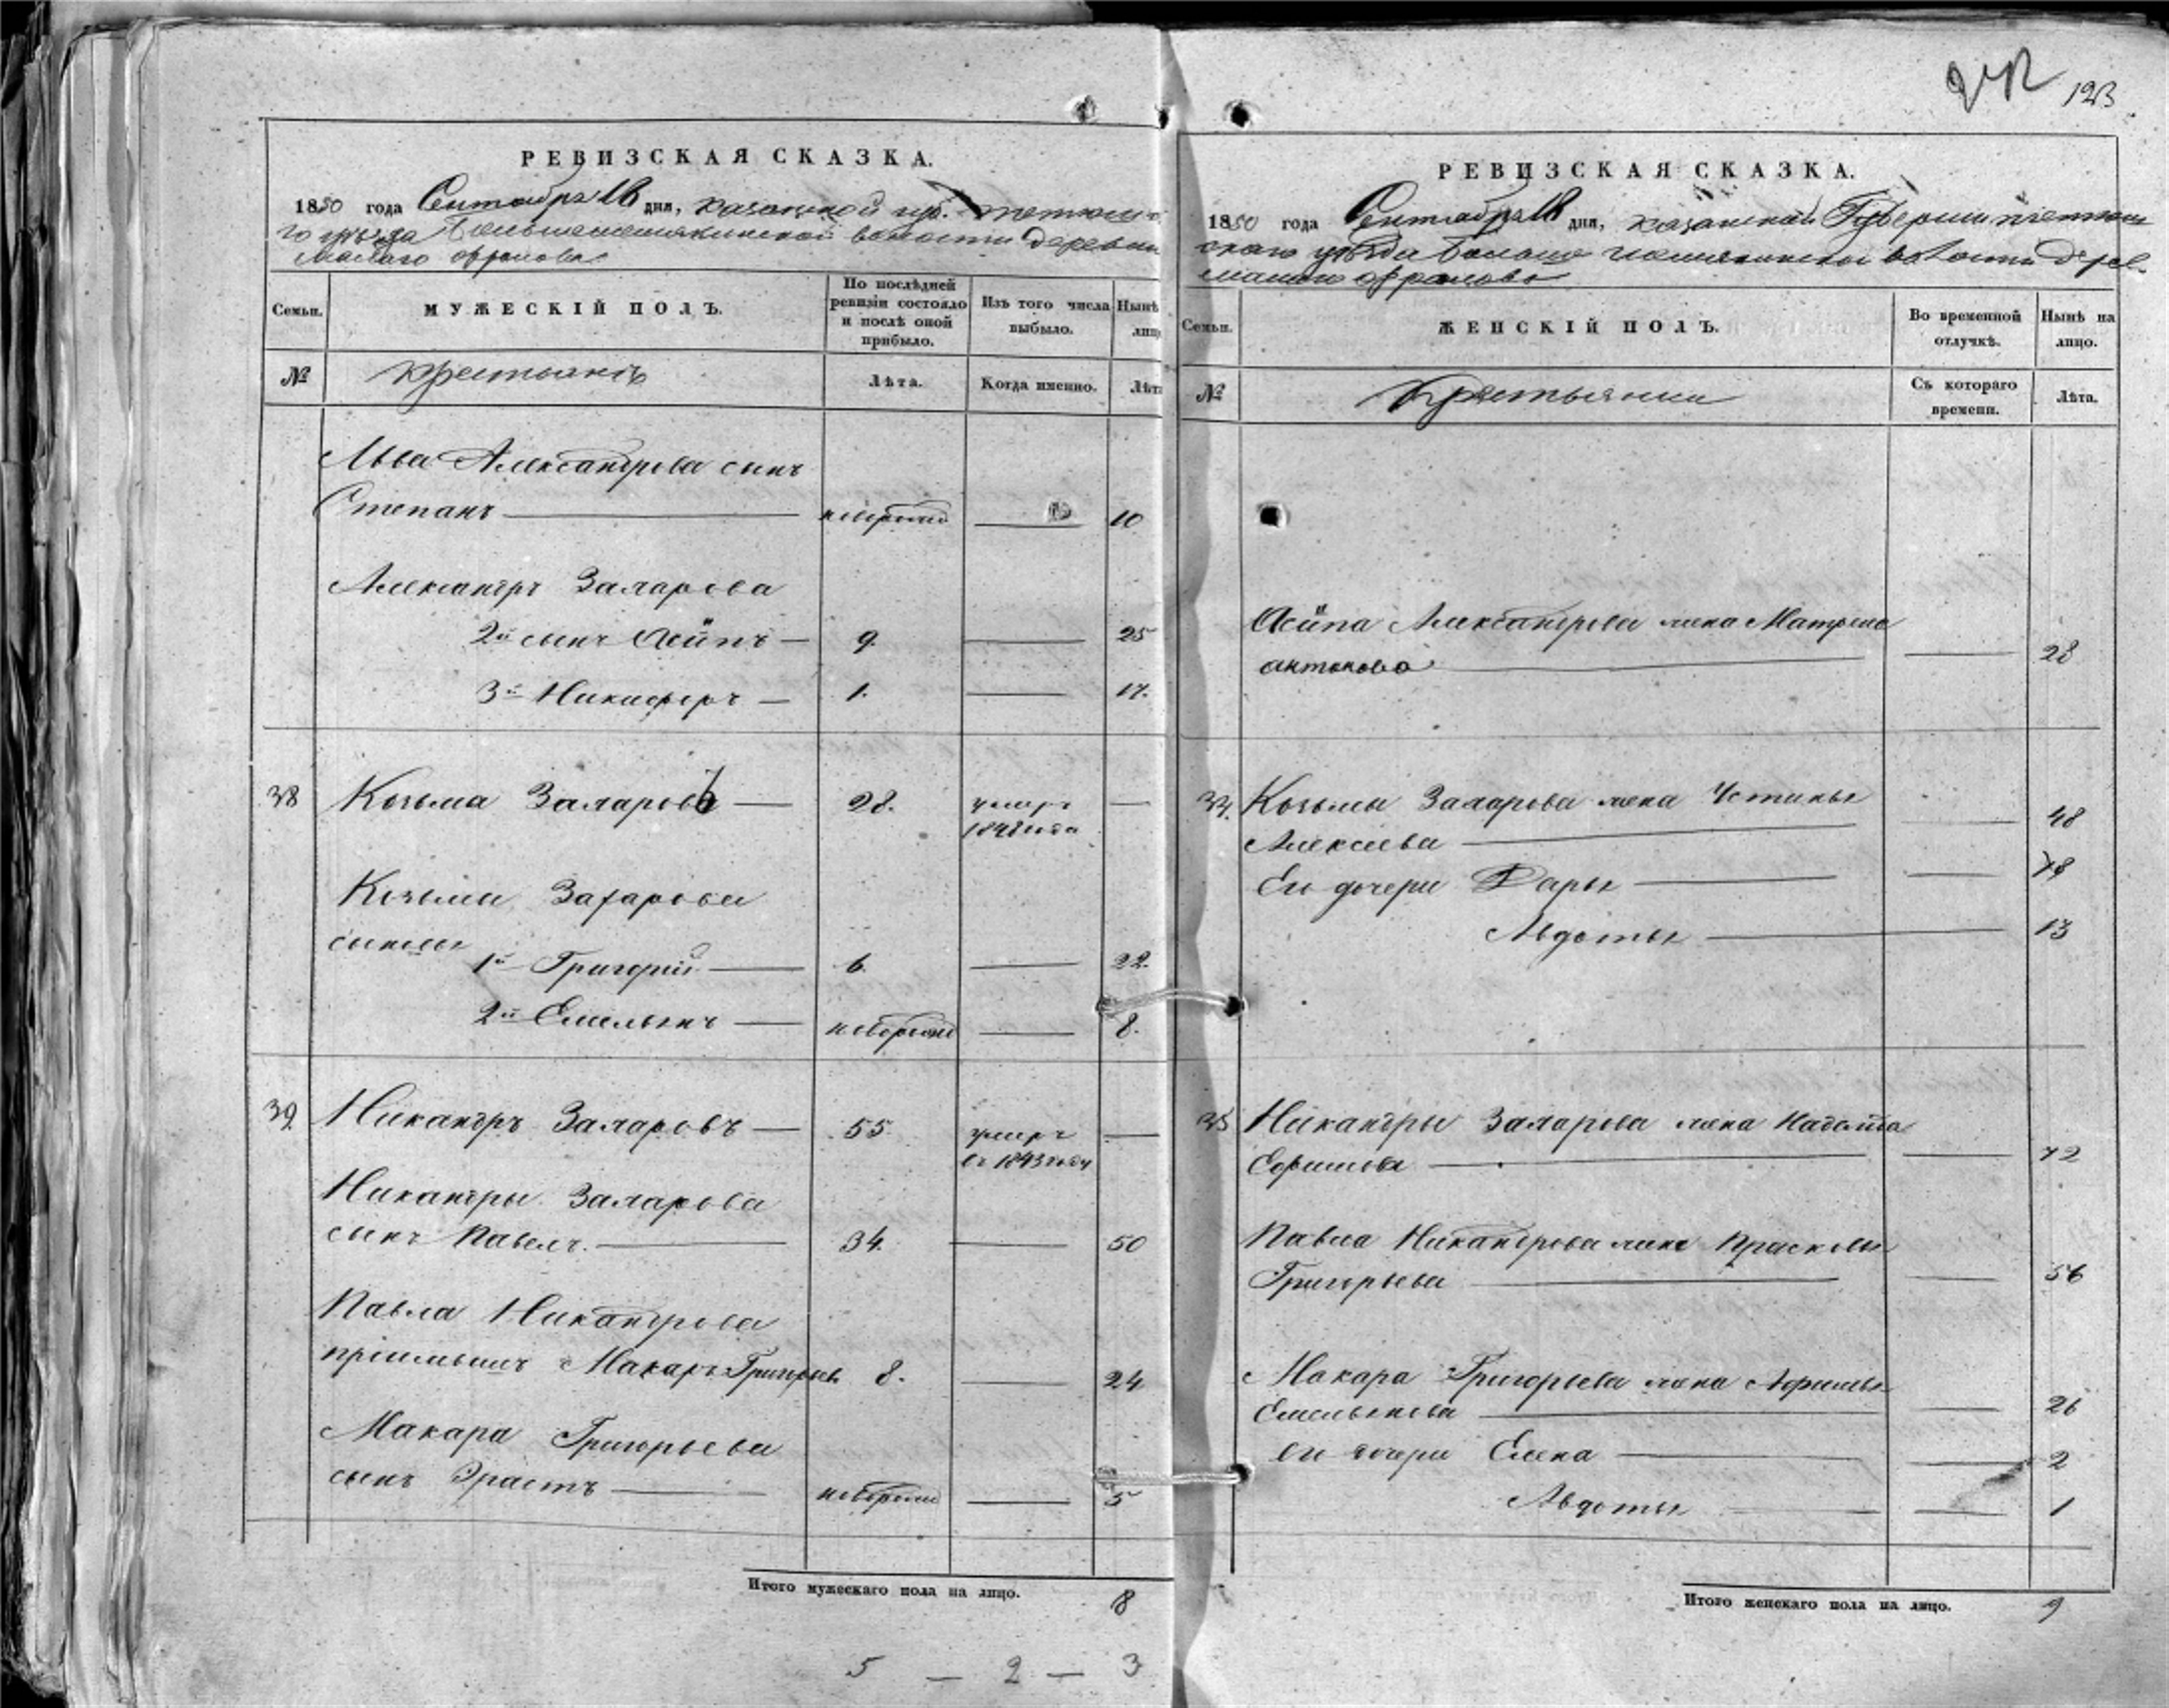 123
РЕВИЗСКАЯ СКАЗКА.
1850 года Сентября 16 дня, Казанской губ.
го уезда волости деревни
Малаго Фролова
Семьи.
МУЖЕСКІЙ ПОЛЪ.
По послѣдней ревизіи состояло и послѣ оной прибыло.
Изъ того числа выбыло.
Нынѣ
лиц
№
крестьянъ
Лѣта.
Когда именно.
Лѣта
Льва Александрова сынъ
Степанъ — новорожд — 10
Александр Захарова
2й сынъ Осипъ — 9. — 25
3й Никифоръ — 1. — 17.
38 Козьма Захаровъ — 28. умеръ —
184 года
Козьмы Захарова
сыновья
1й Григорій — 6. — 22.
2й Емельянъ — новорожд — 8.
39 Никандръ Захаровъ — 55. умеръ —
въ 1843 году
Никандры Захарова
сынъ Павелъ. — 34. — 50
Павла Никандрова
пріемышъ Макаръ Григорьев 8. — 24
Макара Григорьева
сынъ Эрастъ — новорожд — 5
Итого мужескаго пола на лицо. 8
5 — 2 — 3
РЕВИЗСКАЯ СКАЗКА.
1850 года Сентября 16 дня, Казанской Губернии
скаго уезда волости дерев.
Малаго Фролова
Семьи.
ЖЕНСКІЙ ПОЛЪ.
Во временной отлучкѣ.
Нынѣ на лицо.
№
Крестьянки
Съ котораго времени.
Лѣта.
Осипа Александрова жена Матрена
Антонова — 28
Козьмы Захарова жена Устинья
Алексеева — 48
Ею дочери Дарья — 18
Авдотья — 13
Никандры Захарова жена
Ефимова — 72
Павла Никандрова жена Прасковья
Григорьева — 56
Макара Григорьева жена Афимья
Емельянова — 26
ею дочери Елена — 2
Авдотья — 1
Итого женскаго пола на лицо. 9